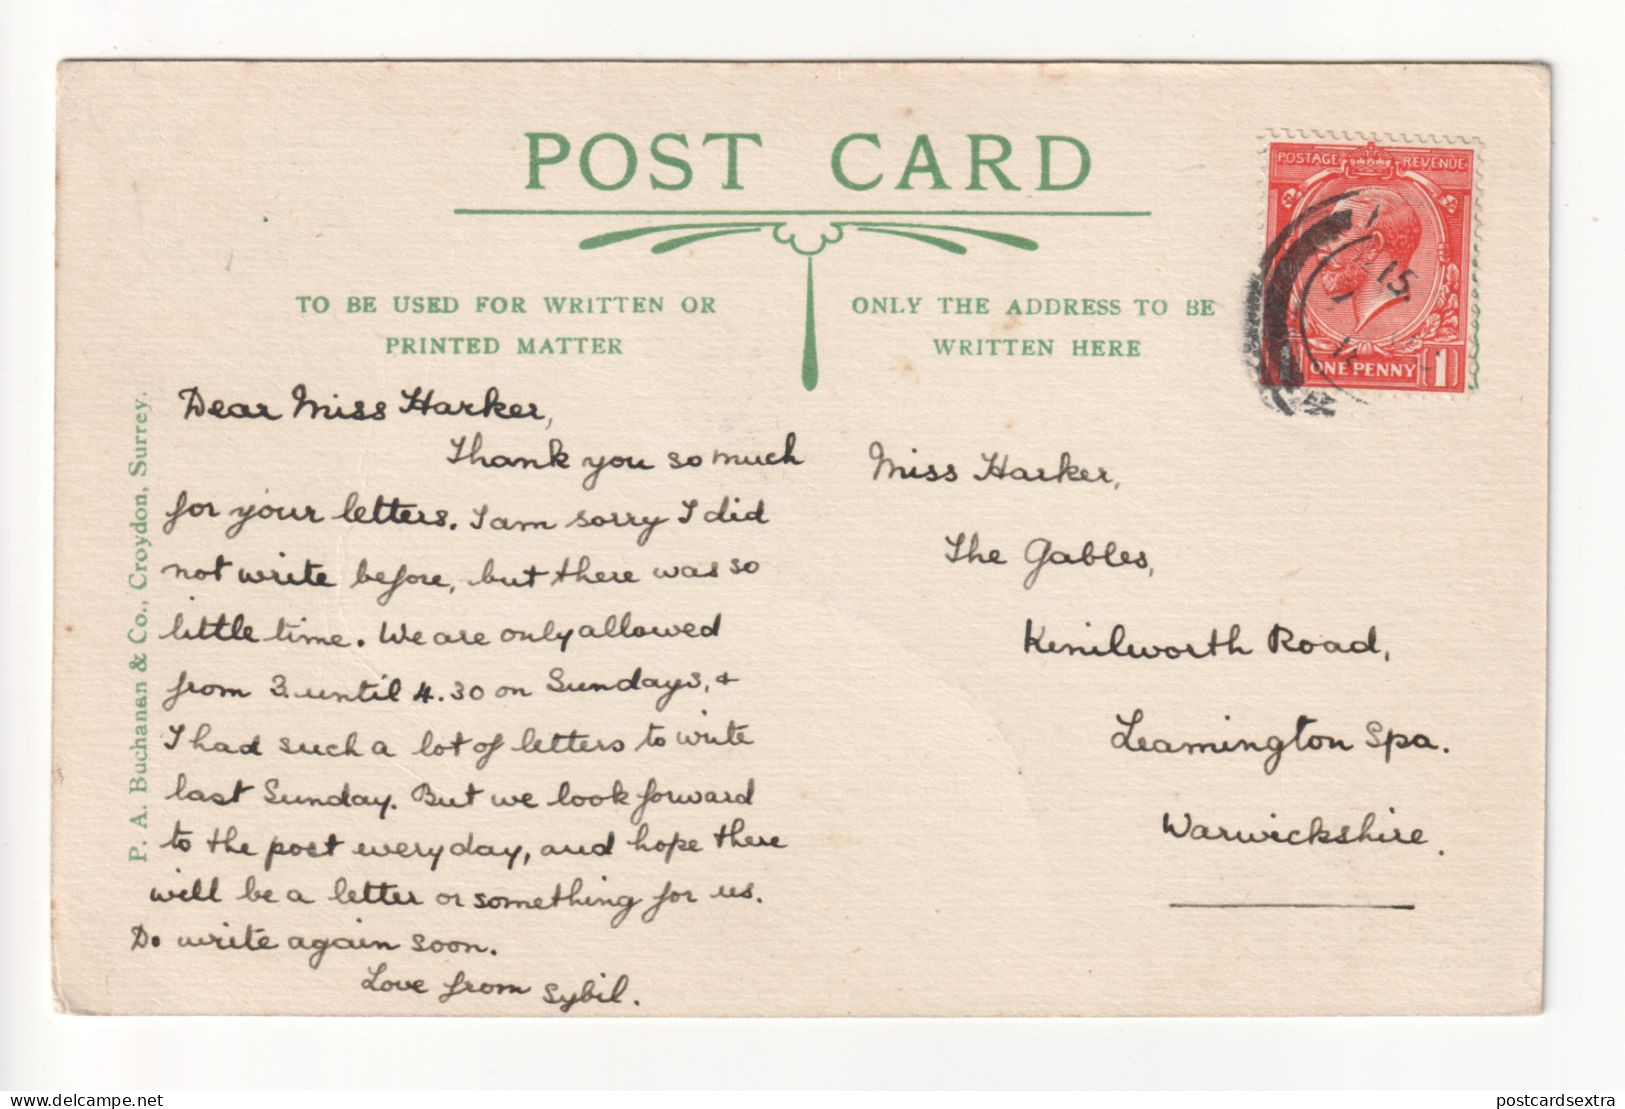 POST CARD
TO BE USED FOR WRITTEN OR
PRINTED MATTER
ONLY THE ADDRESS TO BE
WRITTEN HERE
POSTAGE REVENUE
ONE PENNY 1
15
P. A. Buchanan & Co., Croydon, Surrey.
Dear Miss Harker,
Thank you so much
for your letters. I am sorry I did
not write before, but there was so
little time. We are only allowed
from 3 until 4.30 on Sundays, &
I had such a lot of letters to write
last Sunday. But we look forward
to the post every day, and hope there
will be a letter or something for us.
Do write again soon.
Love from Sybil.
Miss Harker,
The Gables,
Kenilworth Road,
Leamington Spa.
Warwickshire.
delcampe.net
postcardsextra